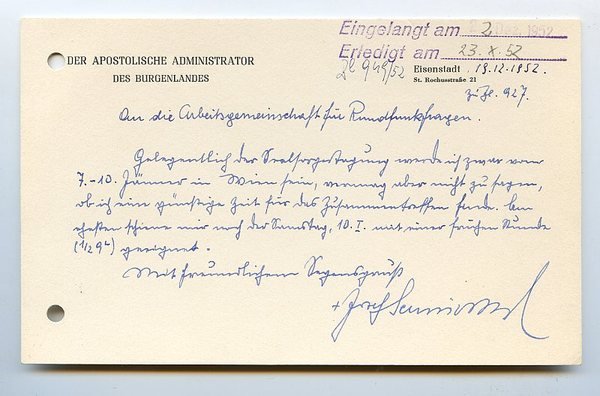 Eingelangt am 2 1952
DER APOSTOLISCHE ADMINISTRATOR
DES BURGENLANDES
Erledigt am 23. X. 52
Zl 949/52 Eisenstadt, 19.12.1952.
St. Rochusstraße 21
zu Zl. 927.
An die Arbeitsgemeinschaft für Rundfunkfragen.
Gelegentlich der Seelsorgertagung werde ich zwar vom
7.-10. Jänner in Wien sein, vermag aber nicht zu sagen,
ob ich eine günstige Zeit für das Zusammentreffen finde. Am
ehesten schiene mir noch der Samstag, 10. I. mit einer frühen Stunde
(1/2 9h) geeignet.
Mit freundlichem Segensgruß
+ Josef